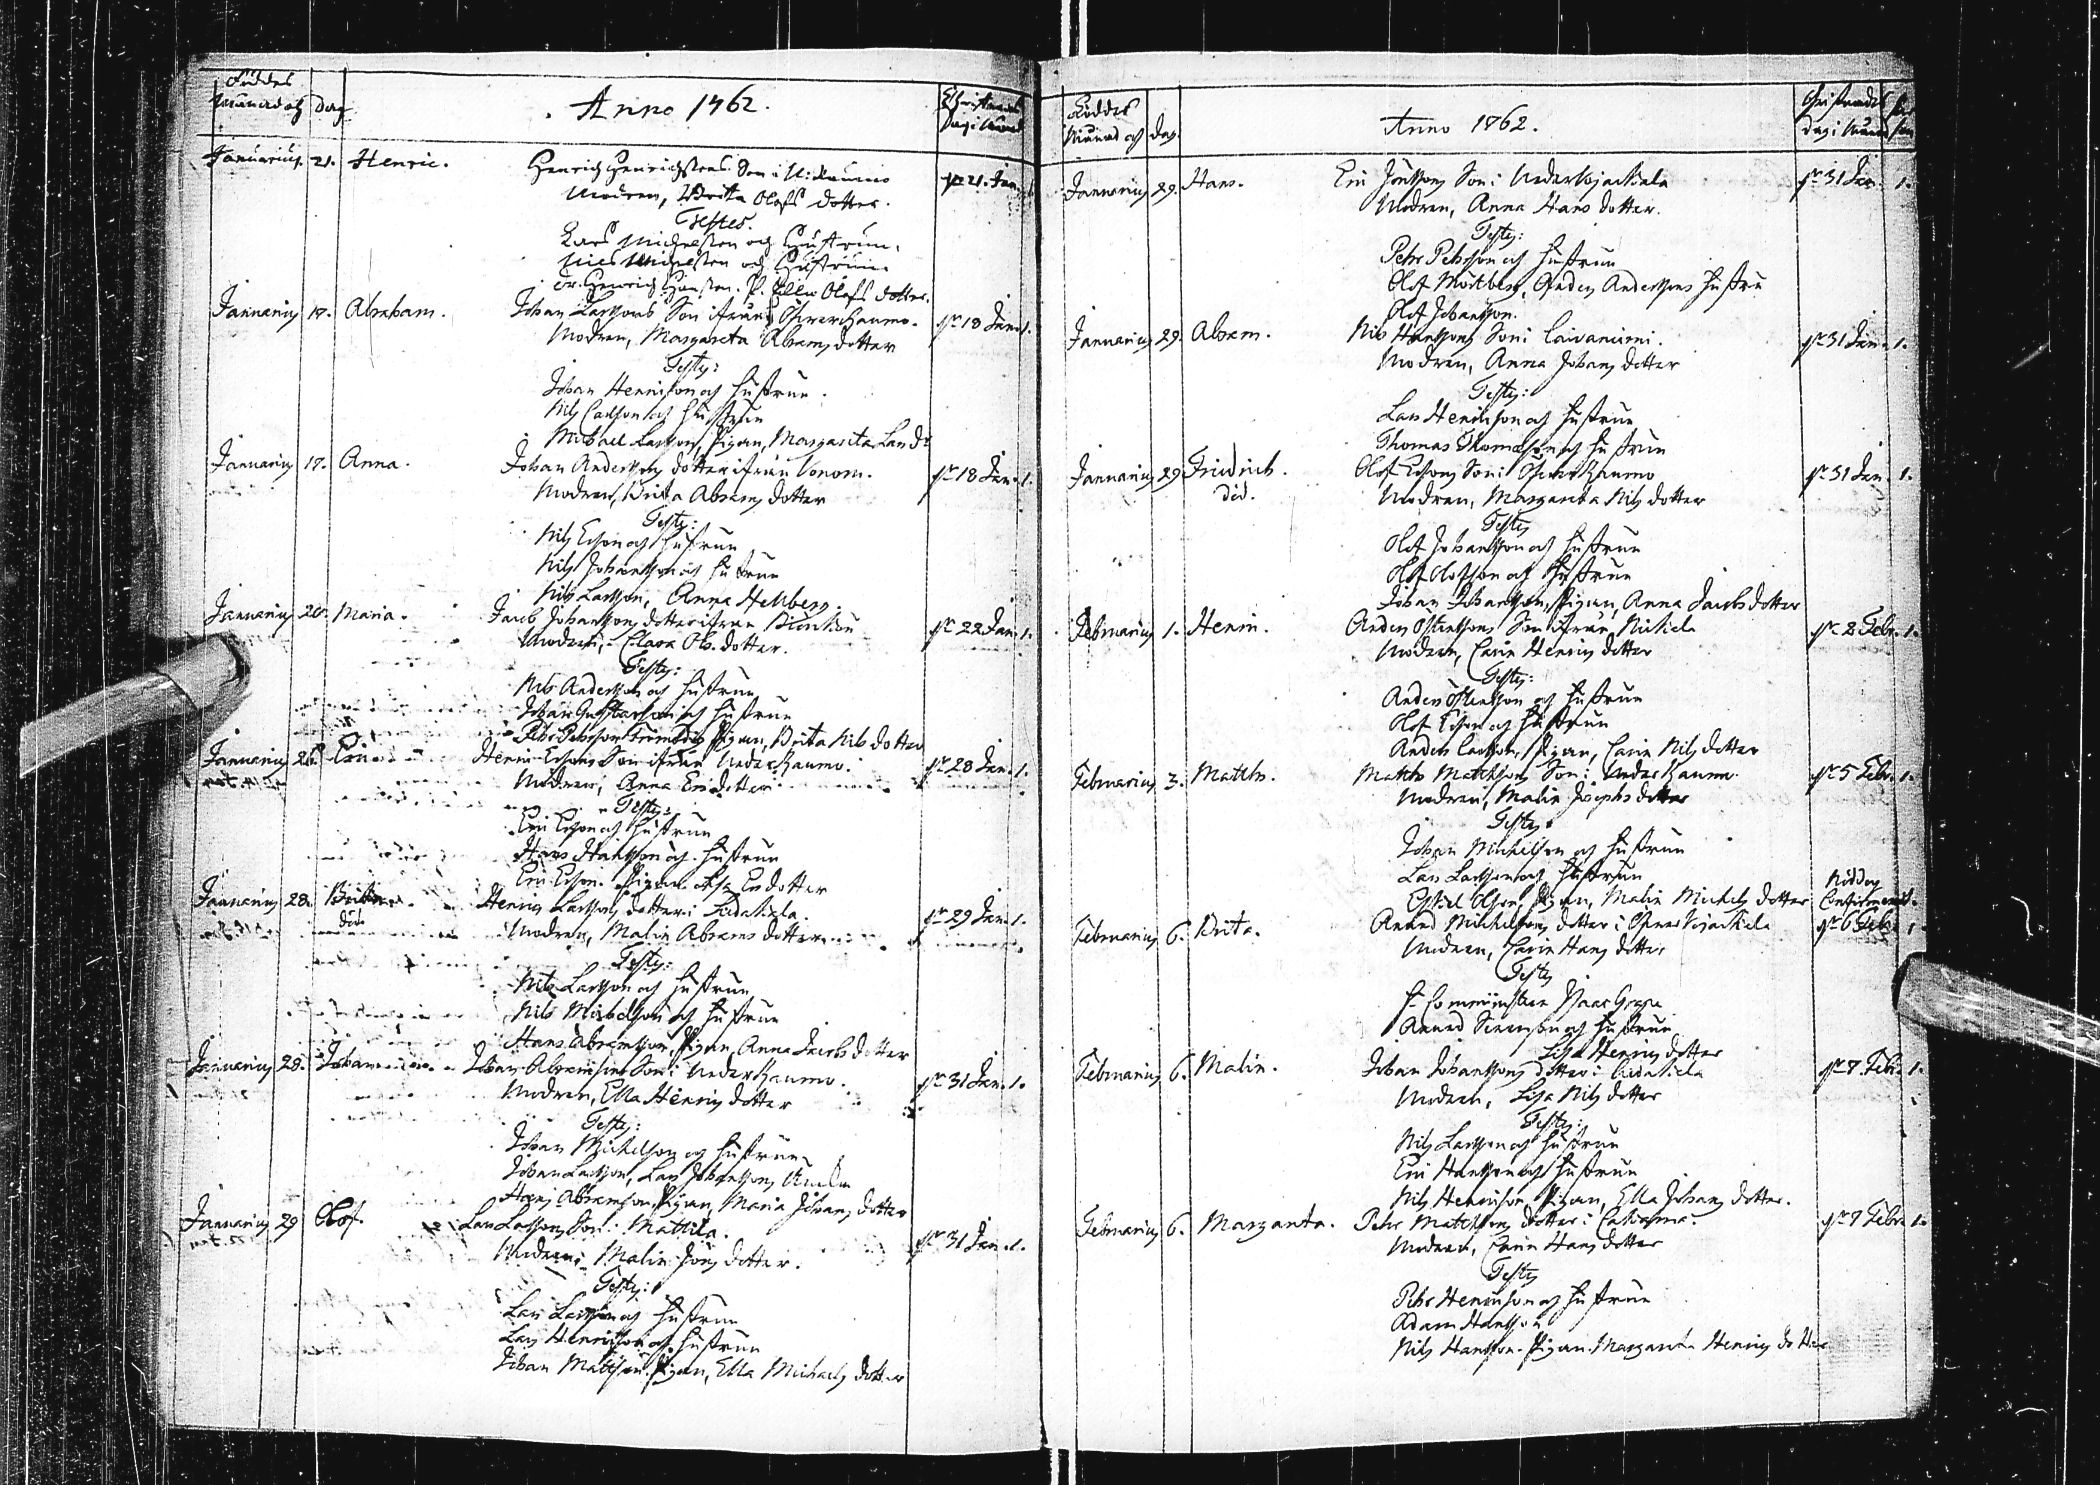 Föddes
Månad och dag
Anno 1762.
Christnades
Dag i Månad
Januarius. 21. Henric. Henrich Henrichssons Son i N: Raumo den 21. Jan. 1.
Modren, Brita Olofs dotter.
Testes.
Lars Michelsson och Hustrun.
Nils Michelsson och Hustrun.
Dr. Henrich Hansson. P. Ella Olofs dotter.
Januarius 17. Abraham. Johan Larssons Son ifrån Öfver Raumo. den 18 Jan. 1.
Modren, Margareta Abrams dotter
Testes:
Johan Henricson och hustrun.
Nils Carlson och hustrun
Michael Larsson, Pigan, Margareta Lars dr
Januarius 17. Anna. Johan Anderssons dotter ifrån Vonom. den 18 Jan. 1.
Modren, Brita Abrams dotter
Testes:
Nils Ersson och hustrun
Nils Johansson och hustrun
Nils Larsson, Anna Hellberg.
Januarius 20. Maria. Jacob Johanssons dotter ifrån den 22 Jan. 1.
Modren, Clara Ols. dotter.
Testes:
Nils Andersson och hustrun
Johan Gustafson och hustrun
Pehr Pehrsson Pigan, Brita Nils dotter
Januarius 26. Eric Henric Erssons Son ifrån Neder Raumo. den 28 Jan. 1.
Modren, Anna Ers dotter
Testes:
Eric Ersson och hustrun
Hans Hansson och hustrun
Eric Erson. Pigan Ers dotter
Januarius 28. Brita Henric Larssons dotter i den 29 Jan. 1.
död Modren, Malin Abrams dotter
Testes:
Nils Larsson och hustrun
Nils Michelson och hustrun
Hans Abramsson, Pigan, Anna Jacobs dotter
Januarius 28. Johan Johan Abramsons Son i Neder Raumo. den 31 Jan. 1.
Modren, Ella Henrics dotter
Testes:
Johan Michelson och hustrun
Johan Larsson, Lars Johanssons
Hans Abramson, Pigan, Maria Johans dotter
Januarius 29 Olof. Lars Larssons Son i Mattila. den 31 Jan. 1.
Modren, Malin Jöns dotter.
Testes:
Lars Larsson och hustrun
Lars Henricsson och hustrun
Johan Matsson. Pigan, Ella Michaels dotter
Föddes
Månad och dag.
Anno 1762.
Christnades
dag i Månad
Januarius 29. Hans. Eric Jönssons Son i Neder Wojackala den 31 Jan. 1.
Modren, Anna Hans dotter.
Testes:
Pehr Pehrsson och hustrun
Olof Mörtberg, Anders Anderssons hustru
Olof Johansson.
Januarius 29. Abram. Nils Hanssons Son i Laivaniemi. den 31 Jan. 1.
Modren, Anna Johans dotter
Testes:
Lars Henricsson och hustrun
Thomas Thomasson och hustrun
Januarius 29 Friedrich. Olof Erssons Son i Öfver Raumo den 31 Jan. 1.
död. Modren, Margareta Nils dotter
Testes
Olof Johansson och hustrun
Olof Olofsson och hustrun
Johan Johansson, Pigan, Anna Jacobs dotter
Februarius 1. Henric. Anders Östenssons Son ifrån Nickala den 2 Febr. 1.
Modren, Carin Henrics dotter
Testes:
Anders Östensson och hustrun
Olof Erson och hustrun
Anders Larsson, Pigan, Carin Nils dotter
Februarius 3. Matths. Matths Matthssons Son i Neder Raumo. den 5 Febr. 1.
Modren, Malin Josephs dotter
Testes
Johan Michelson och hustrun
Lars Larsson och hustrun
Eskil Olson, Pigan, Malin Michels dotter
Februarius 6. Brita. Anund Michelsons dotter i Öfver Wojackala Nöddop Confirmerat. den 6 Febr. 1.
Modren, Carin Hans dotter
Testes
H. Comministern Isaac Grape
Anund Simonson och hustrun
Lisa Henrics dotter
Februarius 6. Malin. Johan Johanssons dotter i den 7 Febr. 1.
Modren, Lisa Nils dotter
Testes:
Nils Larsson och hustrun
Eric Hansson och hustrun
Nils Henricson, Pigan, Ella Johans dotter.
Februarius 6. Margareta. Pehr Matthssons dotter i den 7 Febr. 1.
Modren, Carin Hans dotter
Testes
Pehr Henricson och hustrun
Adam Hansson
Nils Hansson. Pigan Margareta Henrics dotter